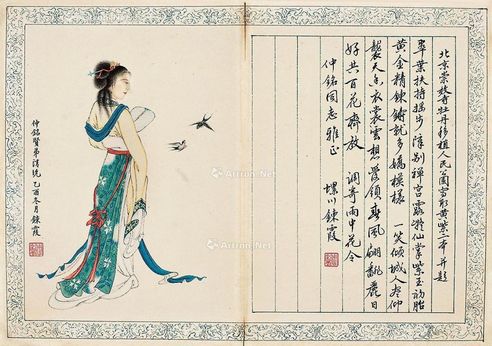 北京崇效寺牡丹移植人民公園形黄紫二本并題
翠葉扶持步別禪宮露仙掌紫玉初胎
黄金精鍊鑄就多嬌模樣 一笑傾城人盡仰
襲天香衣裳雲想管領春風翩麗日
好共百花齊放 調寄雨中花令
仲銘同志雅正
螺川鍊霞
仲銘賢弟清玩 乙酉冬月鍊霞
Artron.Net